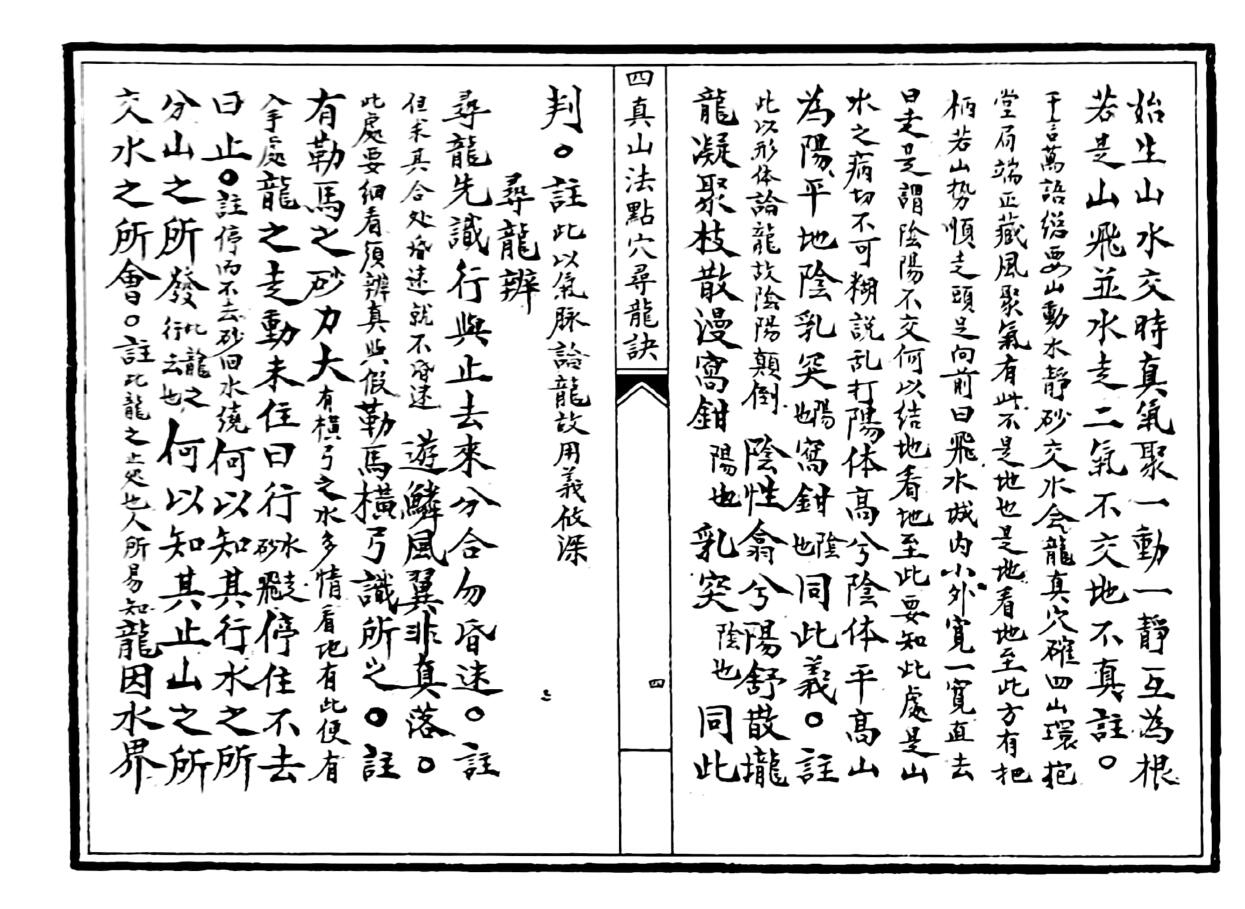 始生山水交時真氣聚一動一靜互為根
若是山飛並水走二氣不交地不真註。
千言萬語緫要山動水靜砂交水会龍真穴確四山環抱
堂局端正藏風聚氣有此不是地也是地看地至此方有把
柄若山势順走頭足向前曰飛水城内小外寬一寬直去
曰走是謂陰陽不交何以结地看地至此要知此處是山
水之病切不可糊説乱打陽体高兮陰体平高山
為陽平地陰乳突陽也窩鉗陰也同此義。註
此以形体論龍故陰陽顛倒陰性翕兮陽舒散攏
龍凝聚枝散漫窩鉗陽也乳突陰也同此
四真山法點穴尋龍訣
四
判。註此以氣脉論龍故用義攸深
尋龍辨
尋龍先識行與止去來分合勿昏迷。註
但求其合处昏迷就不昏迷遊鱗風翼非真落。
此處要細看須辨真與假勒馬横弓識所之。註
有勒馬之砂力大有横弓之水多情看地有此便有
入手處龍之走動未住曰行水走砂飛停住不去
曰止。註停而不去砂回水繞何以知其行水之所
分山之所發此龍之行去也何以知其止山之所
交水之所會。註此龍之止处也人所易知龍因水界